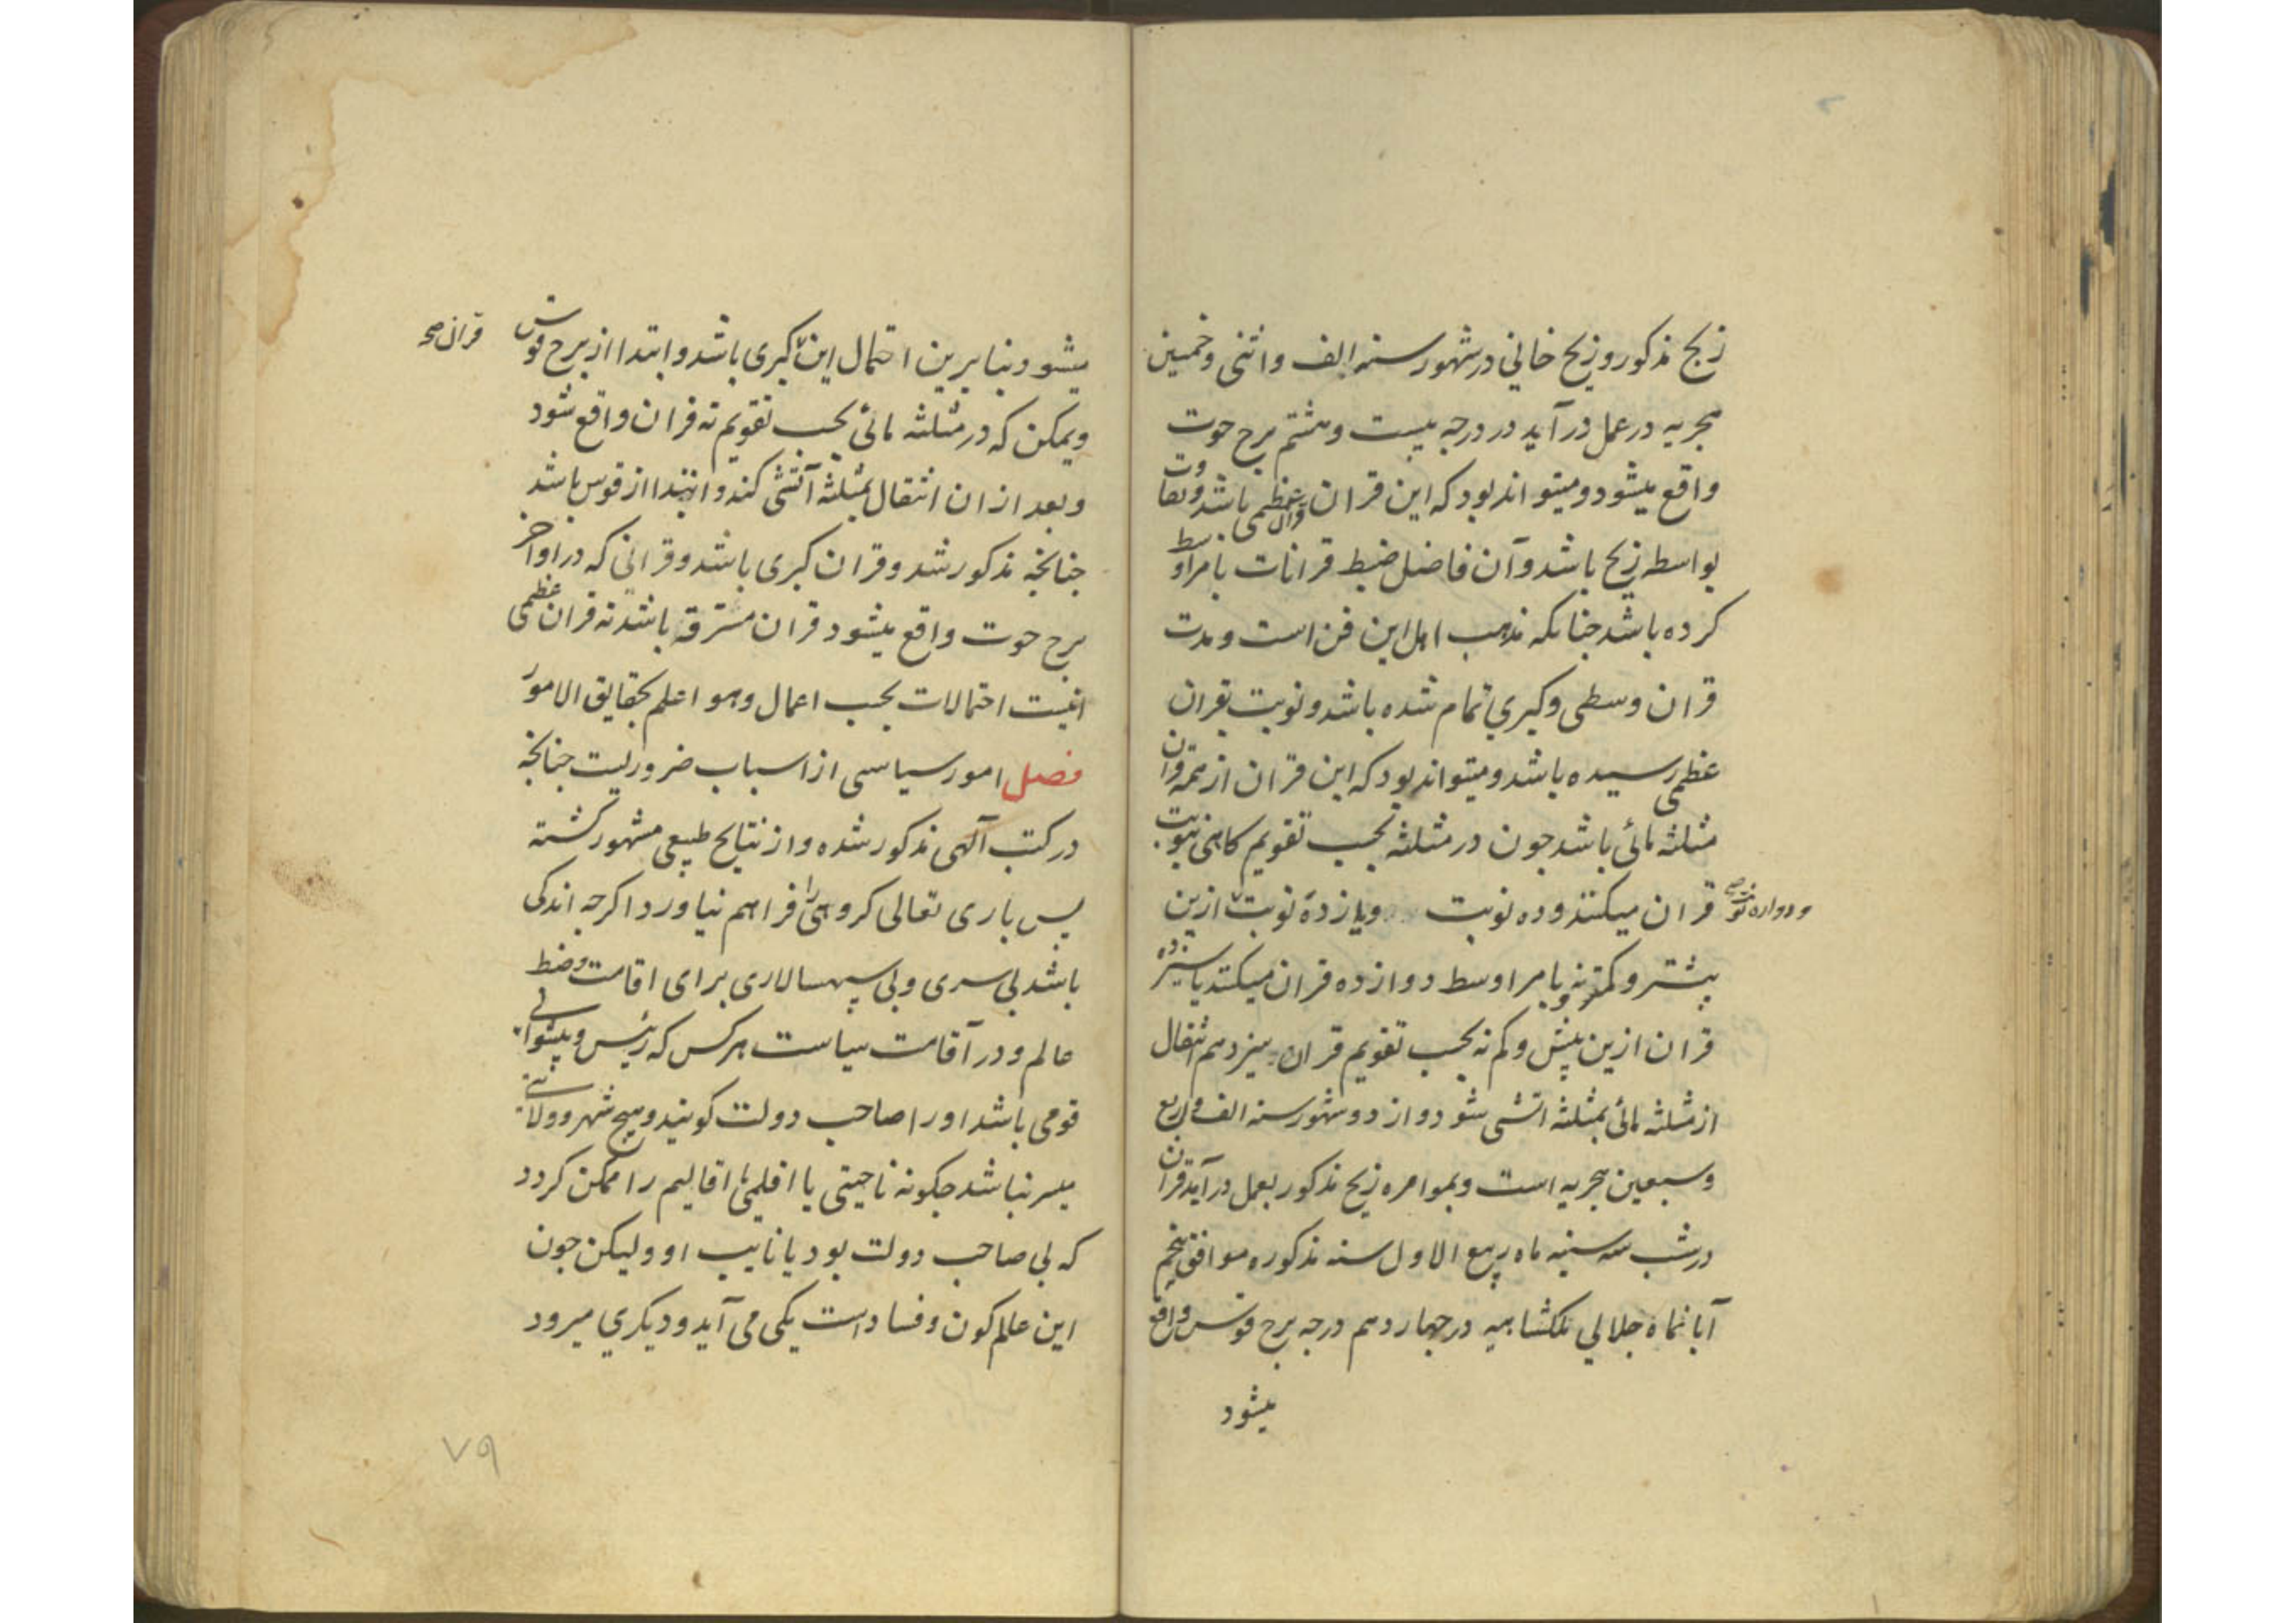 زیج مذکور و زیج خانی در شهور سنه الف و اثنی و خمسین
هجریه در عمل در آید در درجه بیست و هشتم برج حوت
واقع میشود و میتواند بود که این قران قران عظمی باشد و تفاوت
بواسطه زیج باشد و آن فاضل ضبط قرانات بامر اوسط
کرده باشد جنانکه مذهب اهل این فن است و مدت
قران وسطی و کبری تمام شده باشد و نوبت بقران
عظمی رسیده باشد و میتواند بود که این قران از تتمه قران
مثلثه مائی باشد جون در مثلثه بحسب تقویم کاهی نه نوبت
قران میکنند و ده نوبت و یازده نوبت ازین
و دوازده نوبت
بیشتر و کمتر نه و بامر اوسط دوازده قران میکنند یا سیزده
قران ازین بیش و کم نه بحسب تقویم قران سیزدهم انتقال
از مثلثه مائی بمثلثه اتشی شود و از دو شهور سنه الف و اربع
و سبعین هجریه است و بموامره زیج مذکور بعمل در آید قران
در شب سه شنبه ماه ربیع الاول سنه مذکوره موافق پنجم
آبانماه جلالی ملکشاهیه در چهاردهم درجه برج قوس واقع
میشود
میشود و بنا برین احتمال این کبری باشد و ابتدا از برج قوس
قران صح
و یمکن که در مثلثه مائی بحسب تقویم نه قران واقع شود
و بعد از ان انتقال بمثلثه آتشی کند و ابتدا از قوس باشد
جنانجه مذکور شد و قران کبری باشد و قرانی که در اواخر
برج حوت واقع میشود قران مسترقه باشد نه قران عظمی
اینست احتمالات بحسب اعمال و هو اعلم بحقایق الامور
فصل امور سیاسی از اسباب ضروریست جنانجه
در کتب آلهی مذکور شده و از نتایج طبیعی مشهور کشته
پس باری تعالی کروهی را فراهم نیاورد اکرجه اندکی
باشد بی سری و بی سپهسالاری برای اقامت و ضبط
عالم و در آقامت سیاست هر کس که رئیس و پیشوای
قومی باشد او را صاحب دولت کویند و هیج شهر و ولایتی
میسر نباشد جکونه ناحیتی یا اقلیمی اقالیم را ممکن کردد
که بی صاحب دولت بود یا نایب او و لیکن جون
این عالم کون و فساد است یکی می آید و دیکری میرود
۷۹